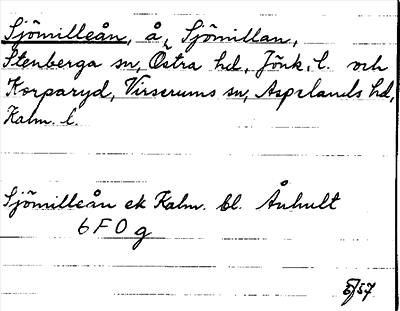 Sjömilleån, å, Sjömillan,
Stenberga sn, Östra hd, Jönk. l. och
Korparyd, Virserums sn, Aspelands hd,
Kalm. l.
Sjömilleån ek Kalm. bl. Ånhult
6 F 0 g
5/57